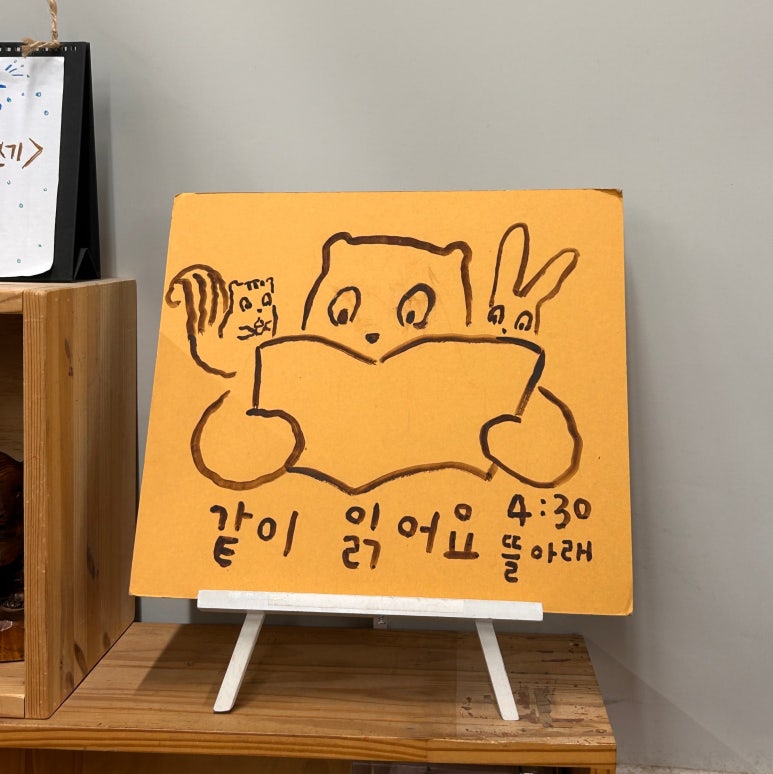 기>
같이 읽어요 4:30
뜰아래